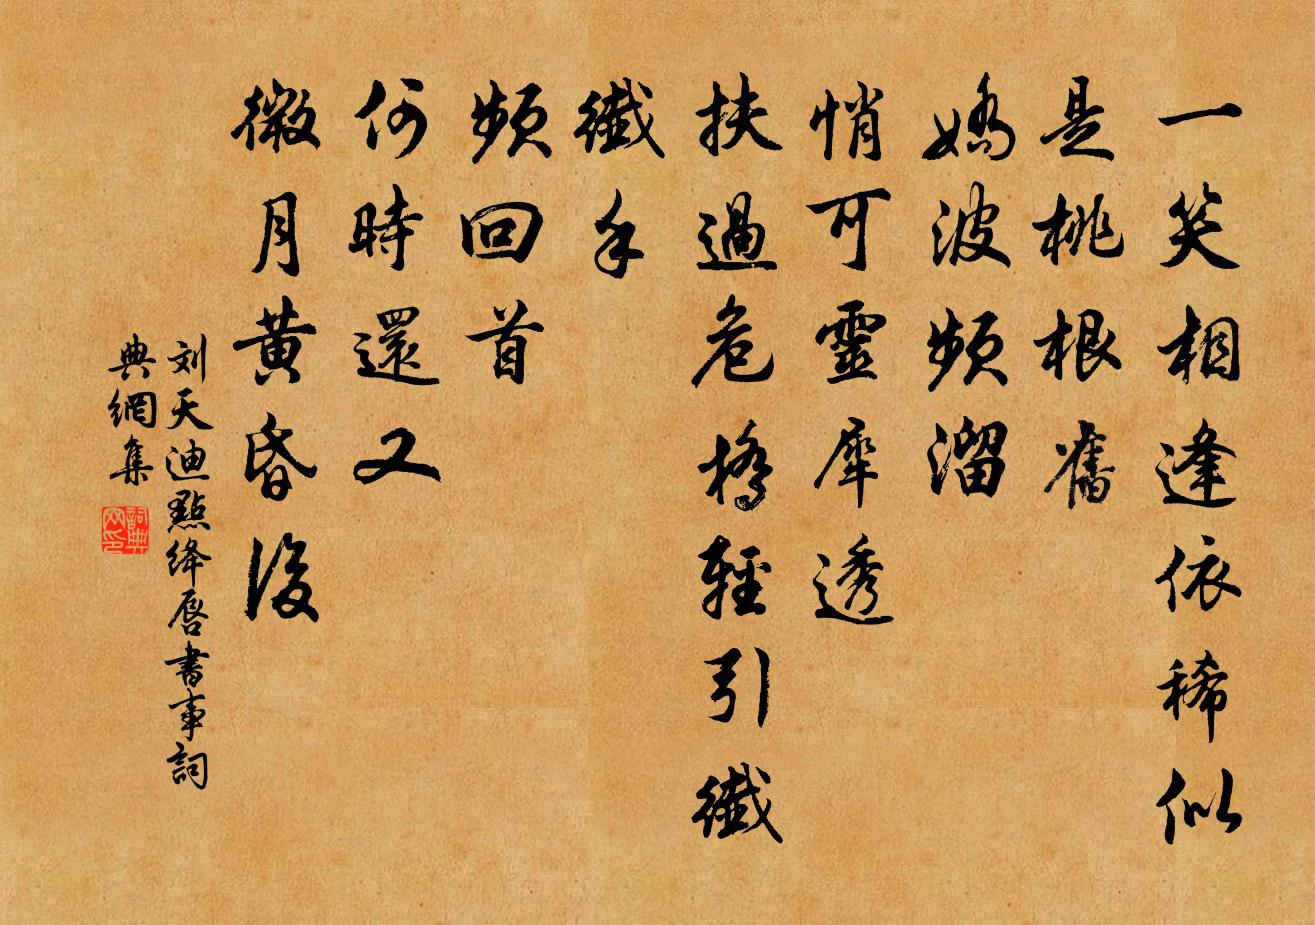 一笑相逢依稀似
是桃根舊
嬌波頻溜
悄可靈犀透
扶過危橋輕引纖
纖手
頻回首
何時還又
微月黃昏後
刘天迪點绛唇書事詞
典網集
詞典網印